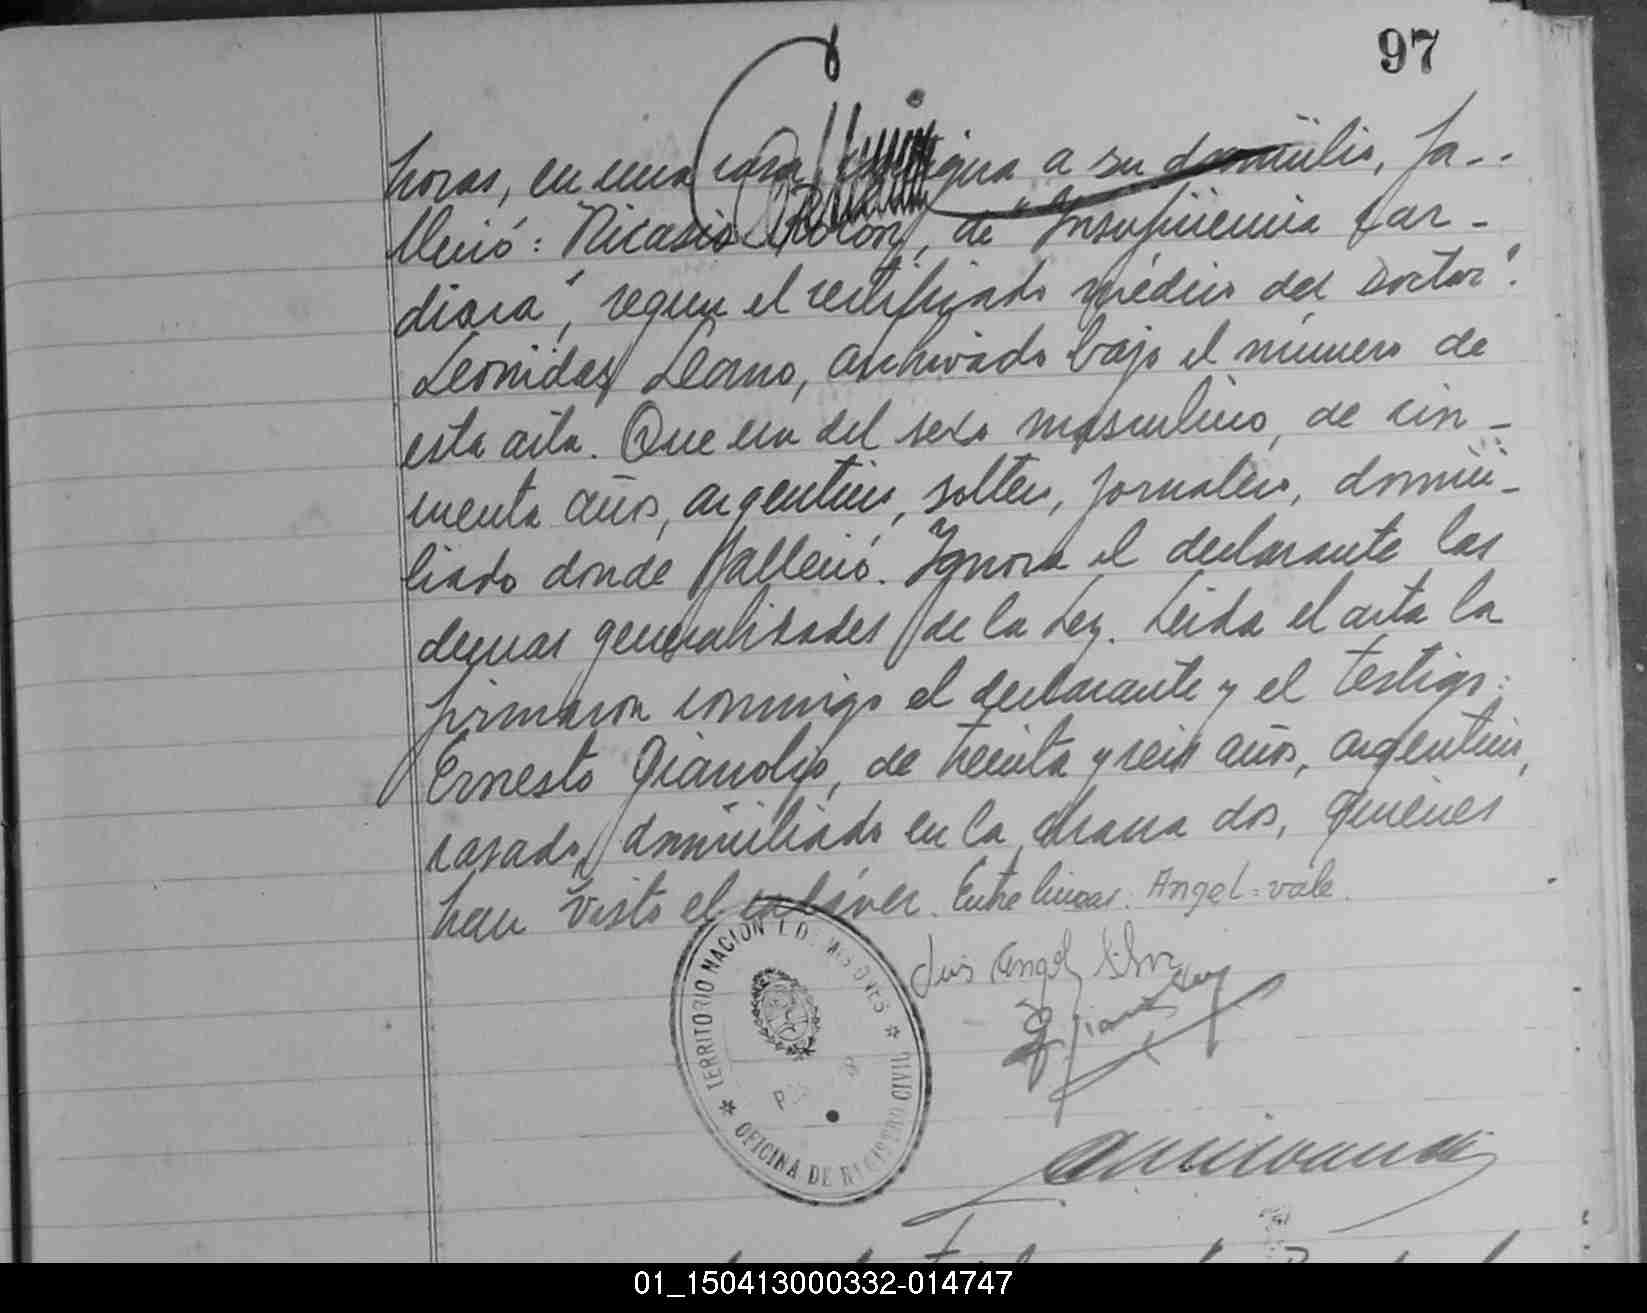 97
horas, en una casa contigua a su domicilio, fa--
lleció: Nicasio Rolon, de "Insuficiencia Car-
diaca", segun el certificado médico del Doctor:
Leonidas Llano, archivado bajo el número de
esta acta. Que era del sexo masculino, de cin-
cuenta años, argentino, soltero, jornalero, domici-
liado donde falleció. Ignora el declarante las
demas generalidades de la Ley. Leida el acta la
firmaron conmigo el declarante y el testigo:
Ernesto Gianolys, de treinta y seis años, argentino,
casado, domiciliado en la chacra dos, quienes
han visto el cadáver. Entre lineas: Angel=vale.
Luis Angel Silva
TERRITORIO NACIONAL DE MISIONES
OFICINA DE REGISTRO CIVIL
01_150413000332-014747